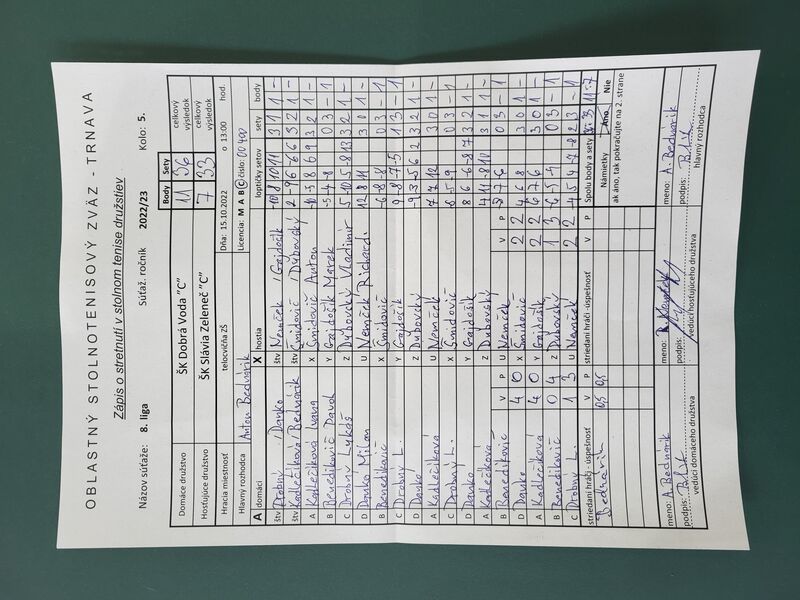 OBLASTNÝ STOLNOTENISOVÝ ZVÄZ - TRNAVA
Zápis o stretnutí v stolnom tenise družstiev
Názov súťaže: 8. liga Súťaž. ročník 2022/23 Kolo: 5.
Body Sety celkový výsledok
Domáce družstvo ŠK Dobrá Voda "C" 11 36 celkový výsledok
Hosťujúce družstvo ŠK Slávia Zeleneč "C" 7 33
Hracia miestnosť telocvičňa ZŠ Dňa: 15.10.2022 o 13:00 hod.
Hlavný rozhodca Anton Bednárik Licencia: M A B C číslo: 00400
A domáci X hostia loptičky setov sety body
štv Drobný / Danko štv Nemček / Gajdočík -10 8 10 11 3 1 1 -
štv Kadlečíková / Bednárik štv Šmidovič / Dubovský 2 -9 6 -6 6 3 2 1 -
A Kadlečíková Ivana X Šmidovič Anton -10 -5 8 6 9 3 2 1 -
B Benedikovič Davol Y Gajdočík Marek -5 -4 -8 0 3 - 1
C Drobný Lukáš Z Dubovský Vladimír 5 -10 5 -8 13 3 2 1 -
D Danko Milan U Nemček Richard 12 8 11 3 0 1 -
B Benedikovič X Šmidovič -6 -8 -8 0 3 - 1
C Drobný L. Y Gajdočík 9 -8 -7 -5 1 3 - 1
D Danko Z Dubovský -9 3 -5 6 2 3 2 1 -
A Kadlečíková U Nemček 7 7 12 3 0 1 -
C Drobný L. X Šmidovič 0 3 - 1
D Danko Y Gajdočík 3 2 1 -
A Kadlečíková Z Dubovský 7 11 -8 10 3 1 1 -
B Benedikovič U Nemček 0 3 - 1
D Danko 4 0 X Šmidovič 2 2 4 6 8 3 0 1 -
A Kadlečíková 4 0 Y Gajdočík 2 2 6 7 6 3 0 1 -
B Benedikovič 0 4 Z Dubovský 1 3 -6 -5 -4 0 3 - 1
C Drobný L. 1 3 U Nemček 2 2 2 3 - 1
striedaní hráči - úspešnosť V P striedaní hráči - úspešnosť V P Spolu body a sety 11:7
Bednárik 0,5 0,5
Námietky Áno Nie
ak áno, tak pokračujte na 2. strane
meno: A. Bednárik meno: meno: A. Bednárik
podpis: podpis: podpis:
vedúci domáceho družstva vedúci hosťujúceho družstva hlavný rozhodca